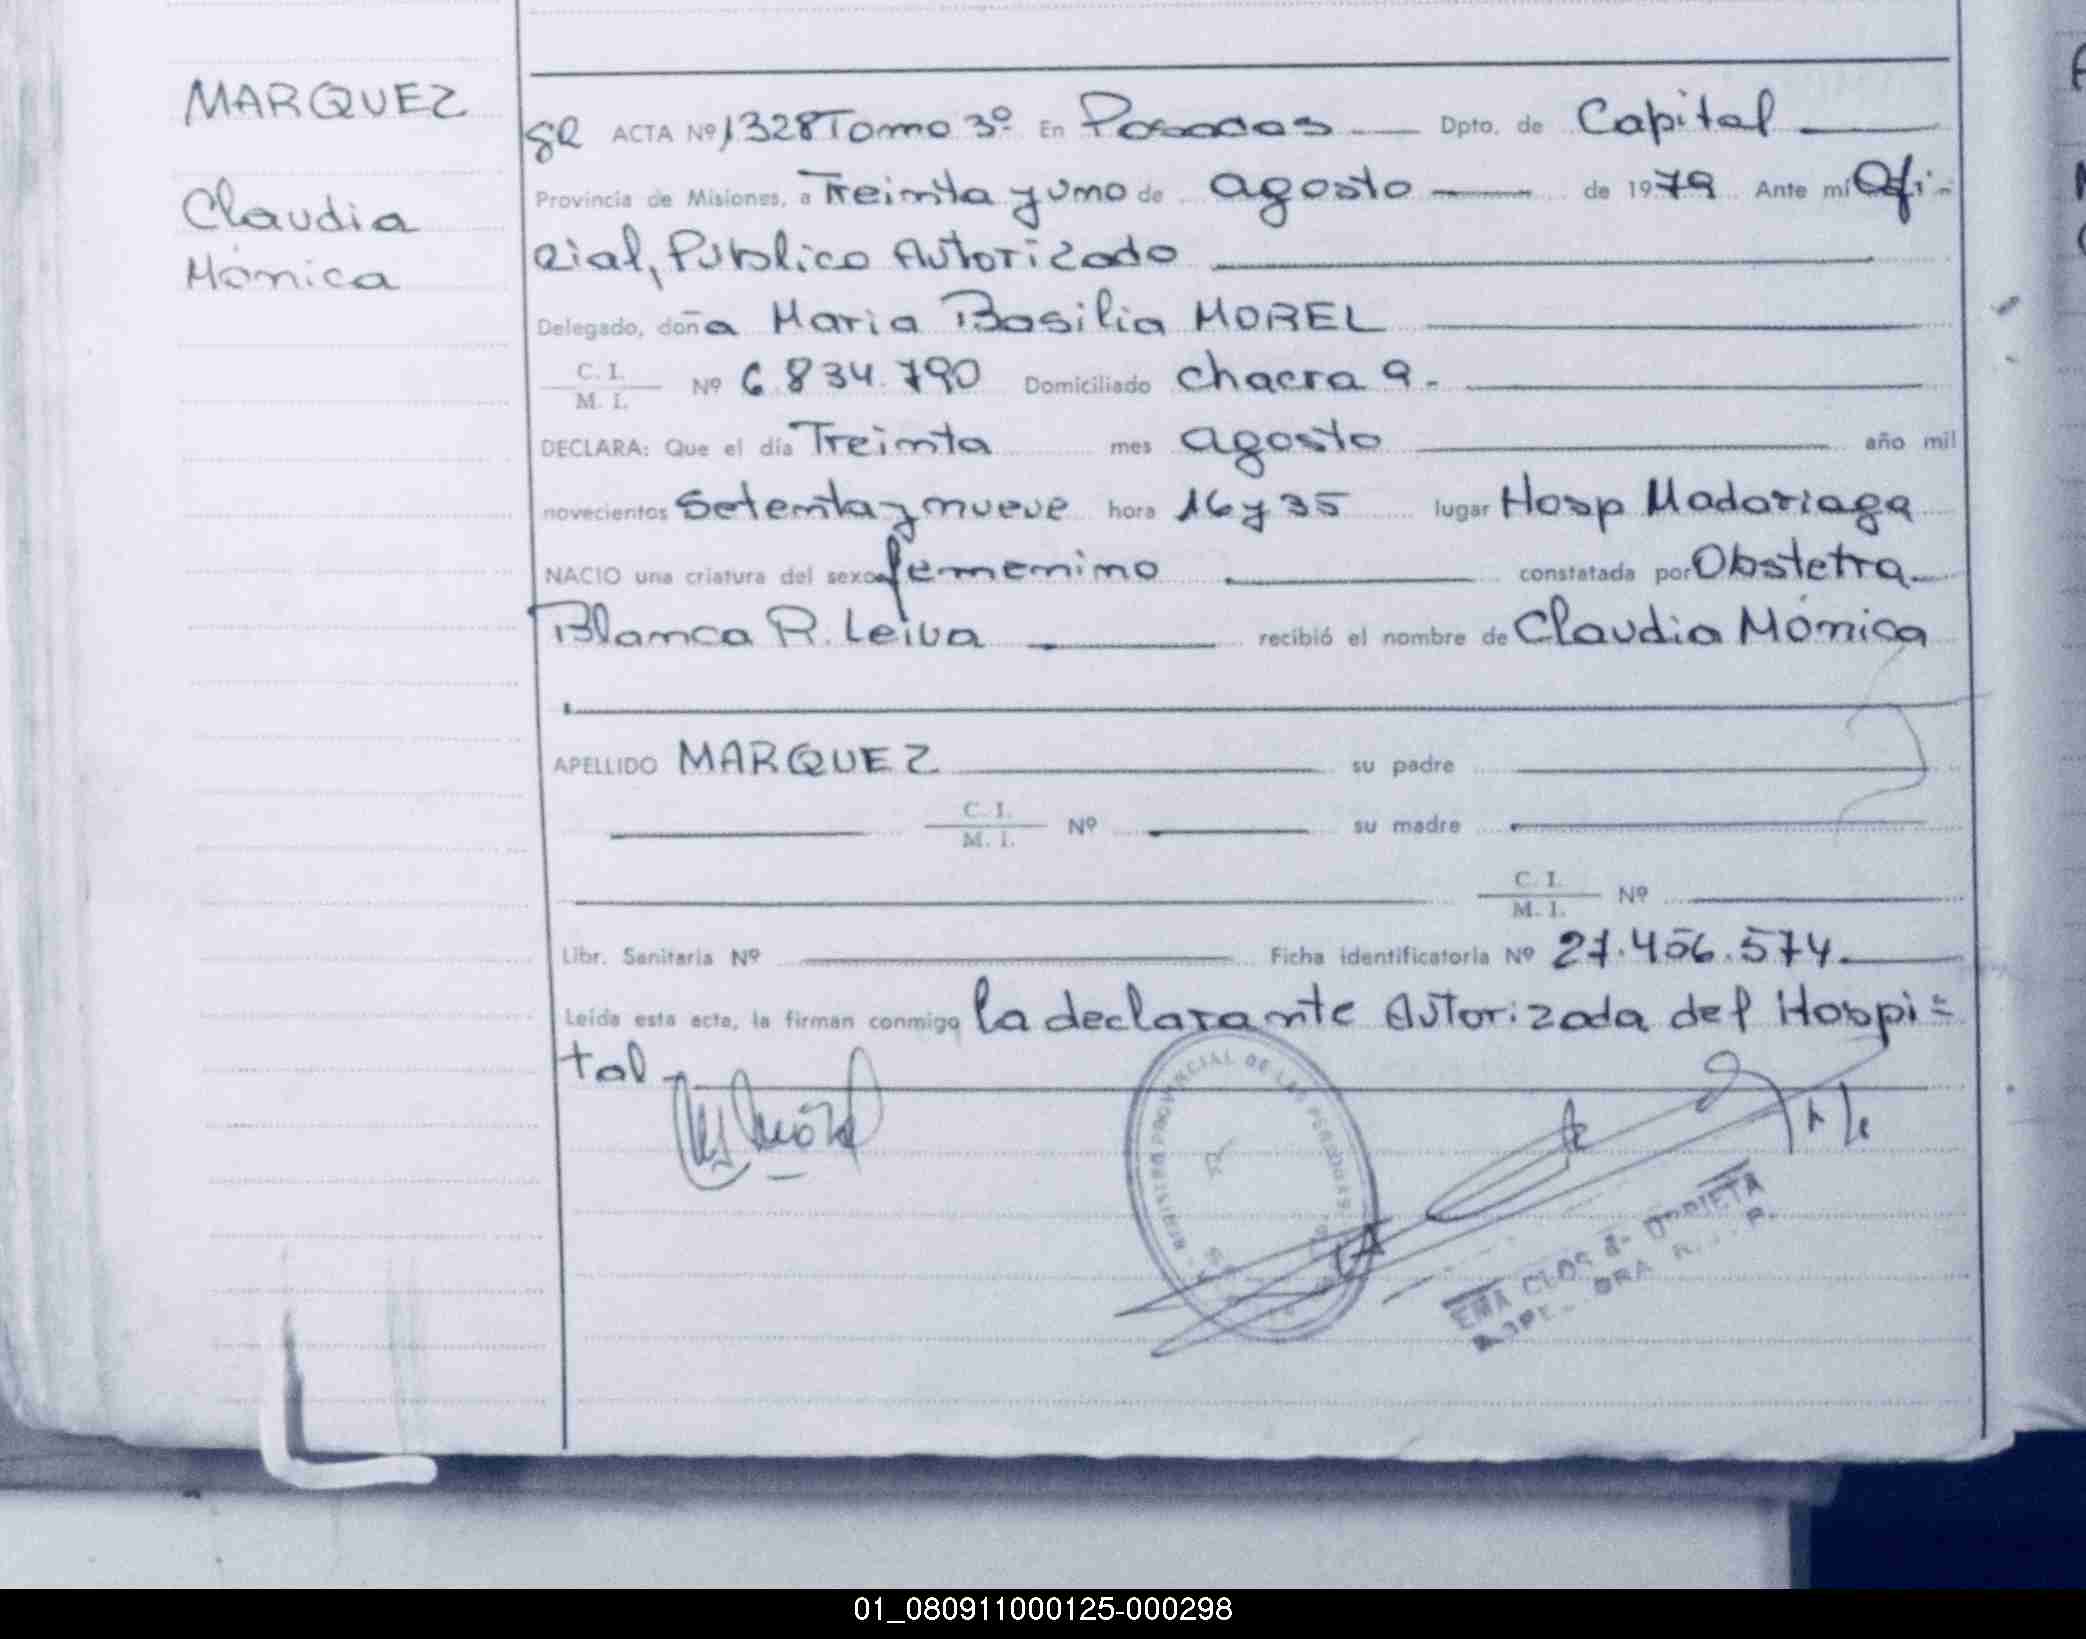 MARQUEZ
Claudia
Mónica
ACTA Nº 1328 Tomo 3º En Posadas Dpto. de Capital
Provincia de Misiones, a Treinta y uno de agosto de 1979 Ante mi Ofi-
cial, Público Autorizado
Delegado, doña Maria Basilia MOREL
C. I.
M. I. Nº 6.834.790 Domiciliado Chacra 9.-
DECLARA: Que el día Treinta mes agosto año mil
novecientos Setenta y nueve hora 16 y 35 lugar Hosp Madariaga
NACIO una criatura del sexo femenino constatada por Obstetra
Blanca R. Leiva recibió el nombre de Claudia Mónica
APELLIDO MARQUEZ su padre
C. I.
M. I. Nº su madre
C. I.
M. I. Nº
Libr. Sanitaria Nº Ficha identificatoria Nº 27.456.574.
Leída esta acta, la firman conmigo la declarante Autorizada del Hospi=
tal
REGISTRO PROVINCIAL DE LAS PERSONAS
01_080911000125-000298